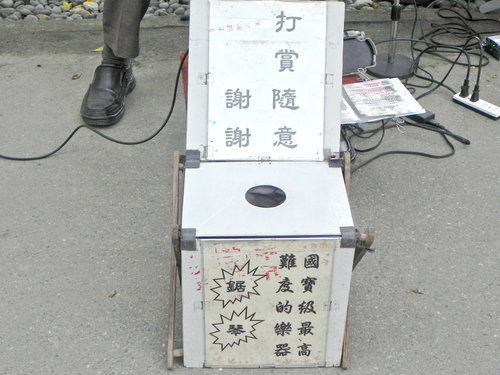 打賞隨意
謝謝
國寶級最高
難度的樂器
鋸
琴